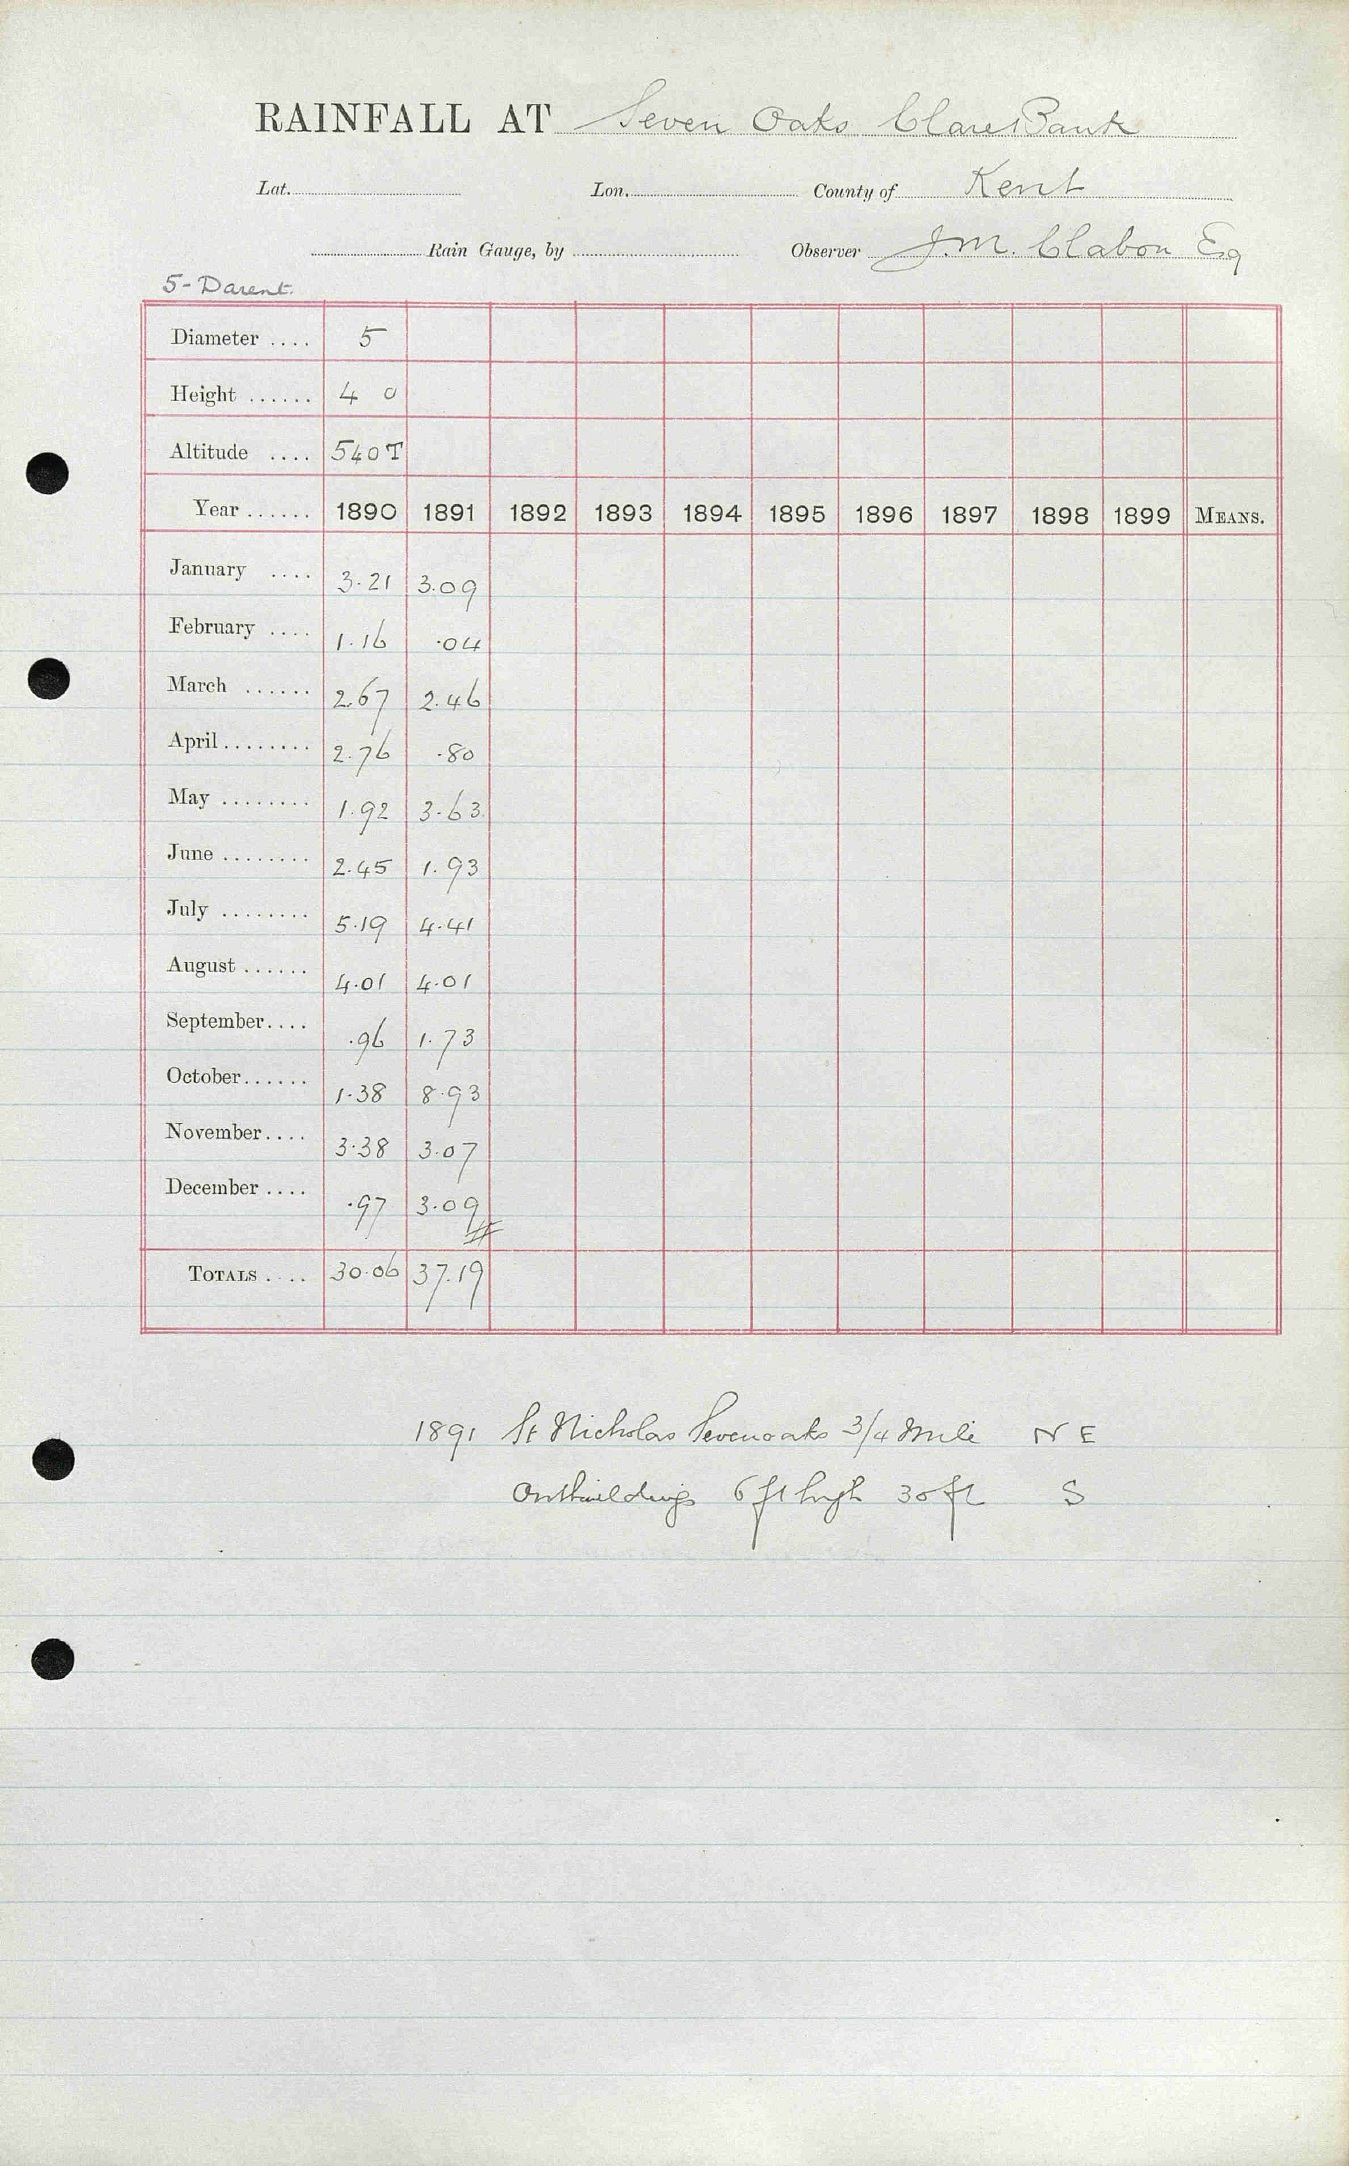 RAINFALL AT Seven Oaks Clare Bank
Lat. Lon. County of Kent
Rain Gauge, by Observer J.M. Clabon Esq
5 - Darent.
Diameter .... 5
Height ...... 4 0
Altitude .... 540 T
Year ...... 1890 1891 1892 1893 1894 1895 1896 1897 1898 1899 MEANS.
January .... 3.21 3.09
February .... 1.16 .04
March ...... 2.67 2.46
April ........ 2.76 .80
May ........ 1.92 3.63
June ........ 2.45 1.93
July ........ 5.19 4.41
August ...... 4.01 4.01
September .... .96 1.73
October ...... 1.38 8.93
November .... 3.38 3.07
December .... .97 3.09
TOTALS .... 30.06 37.19
1891 St Nicholas Sevenoaks 3/4 Mile N E
Outbuildings 6 ft high 30 ft S